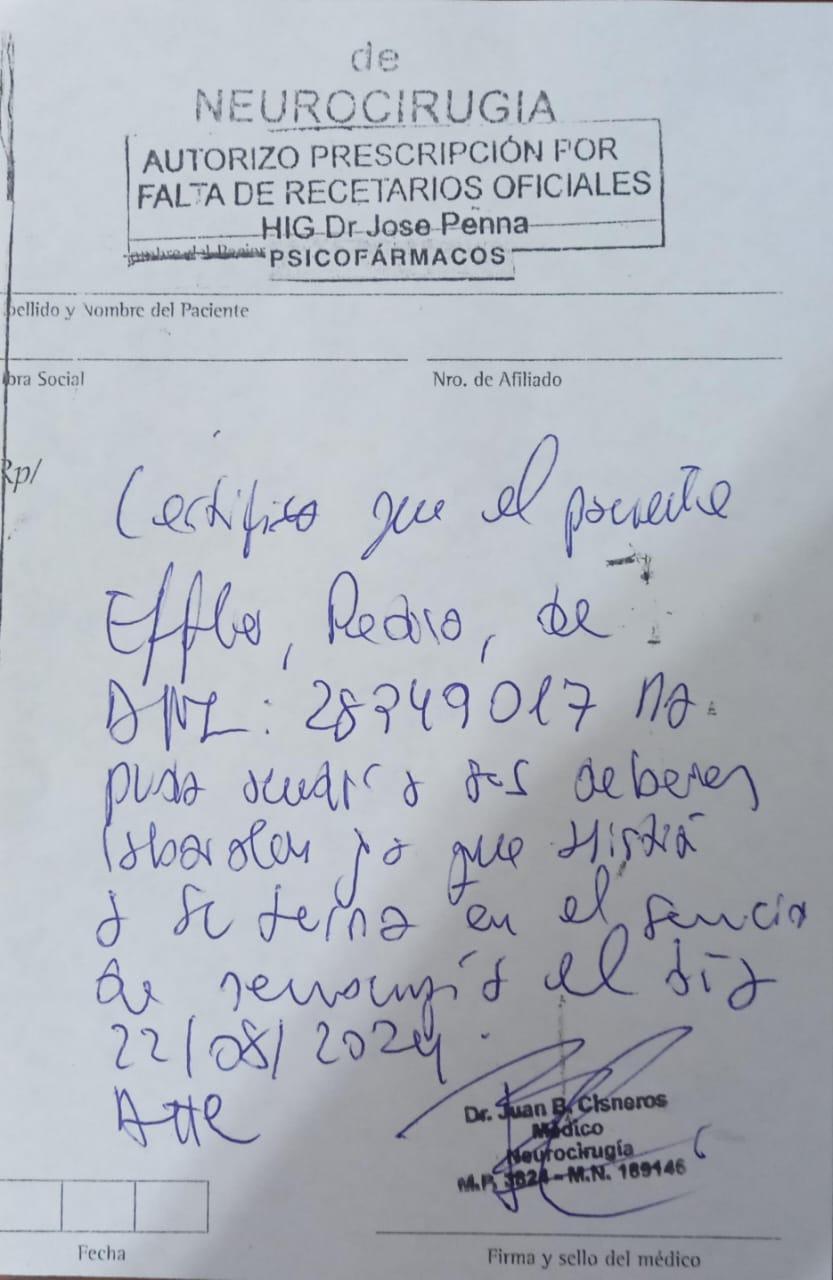 de
NEUROCIRUGIA
AUTORIZO PRESCRIPCIÓN POR
FALTA DE RECETARIOS OFICIALES
HIG Dr Jose Penna
PSICOFÁRMACOS
pellido y Nombre del Paciente
bra Social
Nro. de Afiliado
Rp/
Certifico que el paciente
Pedro, de
DNI: 28749017 no
pudo acudir a sus deberes
laborales ya que asistirá
a su turno en el servicio
de neurocirugía el día
22/08/2024.
Atte
Dr. Juan B. Cisneros
Médico
Neurocirugía
M.P. 3824 - M.N. 169146
Fecha
Firma y sello del médico